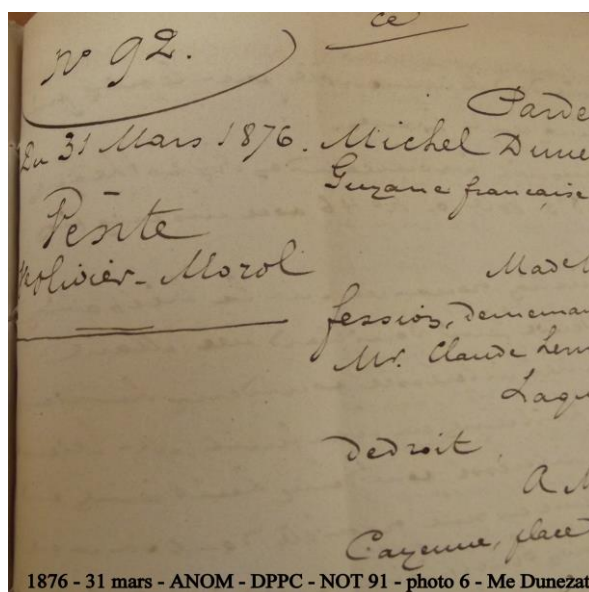 ce
N° 92.
Du 31 Mars 1876.
Vente
Molivier - Morol
Parde
Michel Dune
Guyane française
Made
fession, demeuran
Mr. Claude
Laqu
dedroit
A M
Cayenne, place
1876 - 31 mars - ANOM - DPPC - NOT 91 - photo 6 - Me Dunezat